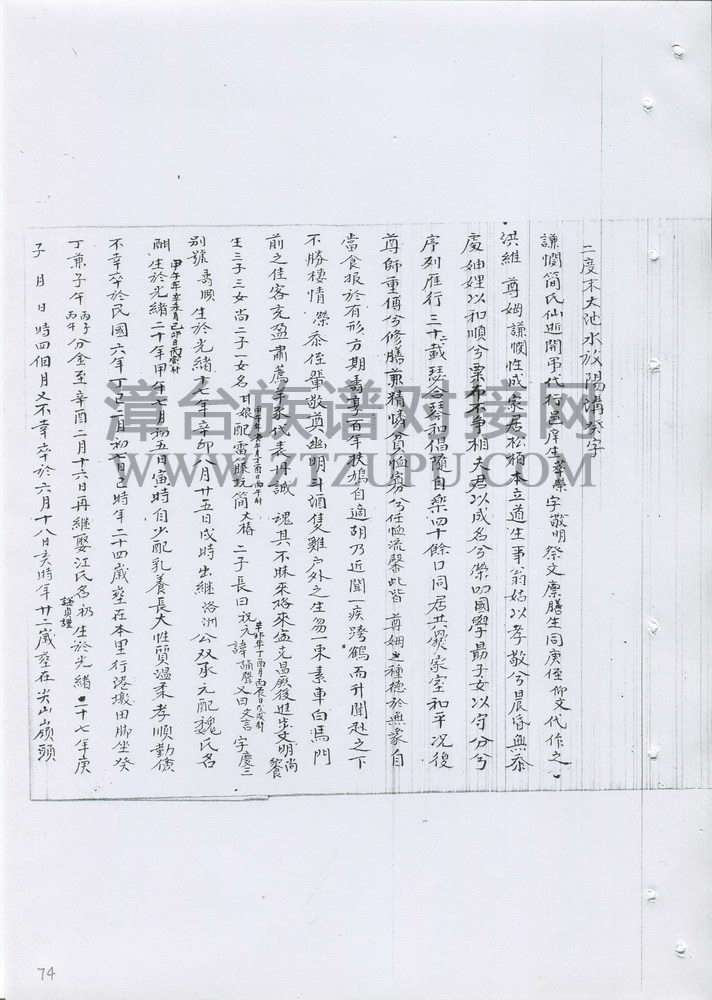 二度末大池水放陽溝癸字
謙惘簡氏仙逝開吊代行邑庠生幸榮字敬明祭文廪膳生同庚侄仰文代作之
洪維 尊姆謙惘性成家居松栢本立道生事翁姑以孝敬兮晨昏無忝
處妯娌以和順兮栗布不爭相夫君以成名兮榮叨國學勗子女以守分兮
序列雁行三十二載瑟合琴和倡隨自樂四十餘口同居共爨家室和平况復
尊師重傅兮修膳兼精憐貧恤寡兮任恤流馨此皆 尊姆之種德於無象自
當食報於有形方期壽享百年扶鳩自適胡乃近聞一疾跨鶴而升聞赴之下
不勝悽情 榮忝侄輩敬奠幽明斗酒隻雞户外之生芻一束素車白馬門
前之佳客充盈肅薦辛 代表丹誠 魂其不昧來格來 克昌厥後進步文明尚饗
生三子三女尚二子一女名 娘配雷藤 簡大椿 二子長曰祝元諱誦聲又曰文言 字慶三
別號壽順 生於光緒十七年辛卯八月廿五日戌時出繼洛洲公双承元配魏氏名
生於光緒二十年甲午七月初五日寅時自少配乳養長大性質温柔孝順勤儉
不幸卒於民國六年丁巳二月初七日巳時年二十四歲塟在本里行港墩田脚坐癸
丁兼子午丙子丙午分金至辛酉二月十六日再繼娶江氏名 謹貞謹 生於光緒二十七年庚
子 月 日 時四個月又不幸卒於六月十八日亥時年廿二歲塟在尖山嶺頭
漳台族谱对接网
WWW.ZTZUPU.COM
74